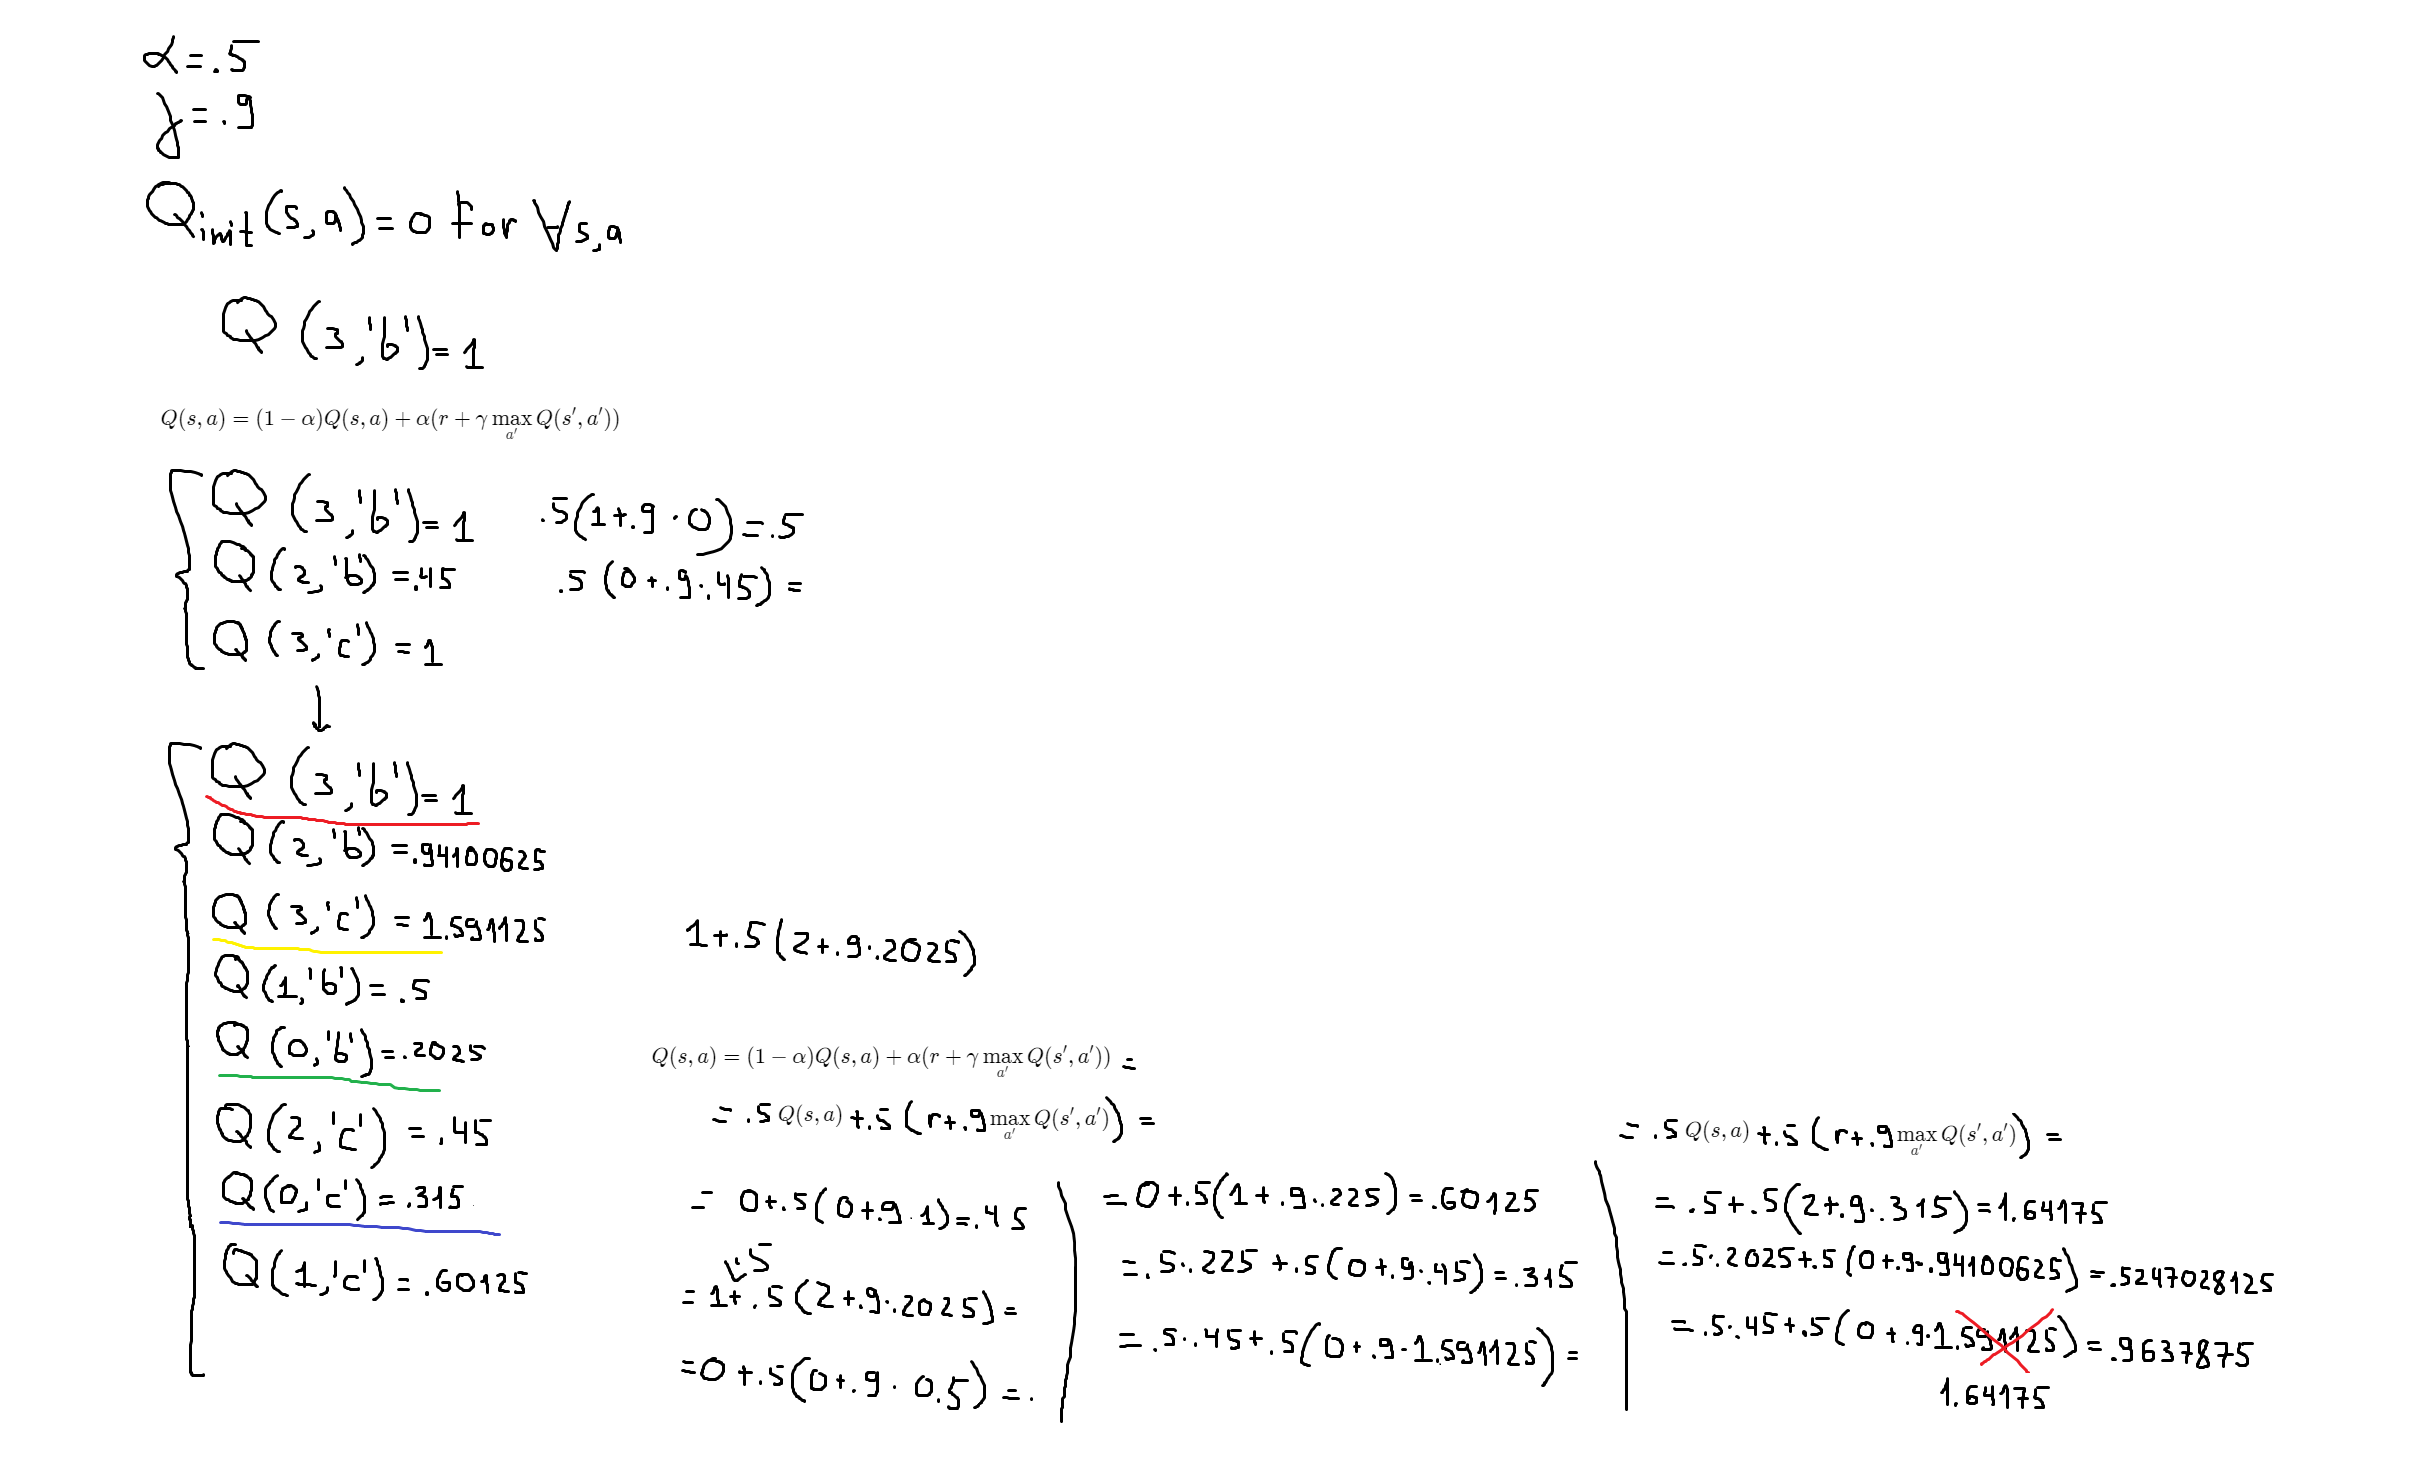 α=.5
γ=.9
Q_init(s,a)=0 for ∀s,a
Q(3,'b')=1
Q(s,a) = (1 − α)Q(s,a) + α(r + γ max_{a'} Q(s',a'))
Q(3,'b')=1 .5(1+.9·0)=.5
Q(2,'b')=.45 .5(0+.9·.45)=
Q(3,'c')=1
↓
Q(3,'b')=1
Q(2,'b')=.94100625
Q(3,'c')=1.591125 1+.5(2+.9·.2025)
Q(1,'b')=.5
Q(0,'b')=.2025
Q(2,'c')=.45
Q(0,'c')=.315
Q(1,'c')=.60125
Q(s,a) = (1 − α)Q(s,a) + α(r + γ max_{a'} Q(s',a')) =
= .5 Q(s,a) +.5(r+.9 max_{a'} Q(s',a')) =
= 0+.5(0+.9·1)=.45
·.5
= 1+.5(2+.9·.2025)=
=0+.5(0+.9·0.5)=.
=0+.5(1+.9·.225)=.60125
=.5·.225+.5(0+.9·.45)=.315
=.5·.45+.5(0+.9·1.591125)=
= .5 Q(s,a) +.5(r+.9 max_{a'} Q(s',a')) =
=.5+.5(2+.9·.315)=1.64175
=.5·.2025+.5(0+.9·.94100625)=.5247028125
=.5·.45+.5(0+.9·1.591125)=.9637875
1.64175